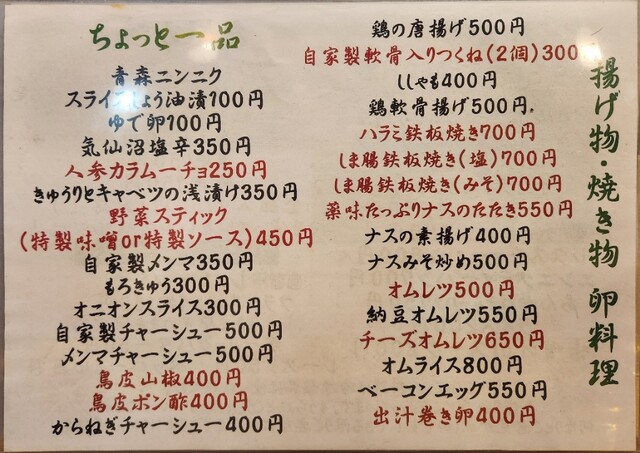 ちょっと一品
青森ニンニク
スライスしょう油漬100円
ゆで卵100円
気仙沼塩辛350円
人参カラムーチョ250円
きゅうりとキャベツの浅漬け350円
野菜スティック
(特製味噌or特製ソース)450円
自家製メンマ350円
もろきゅう300円
オニオンスライス300円
自家製チャーシュー500円
メンマチャーシュー500円
鳥皮山椒400円
鳥皮ポン酢400円
からねぎチャーシュー400円
揚げ物・焼き物 卵料理
鶏の唐揚げ500円
自家製軟骨入りつくね(2個)300円
ししゃも400円
鶏軟骨揚げ500円
ハラミ鉄板焼き700円
しま腸鉄板焼き(塩)700円
しま腸鉄板焼き(みそ)700円
薬味たっぷりナスのたたき550円
ナスの素揚げ400円
ナスみそ炒め500円
オムレツ500円
納豆オムレツ550円
チーズオムレツ650円
オムライス800円
ベーコンエッグ550円
出汁巻き卵400円